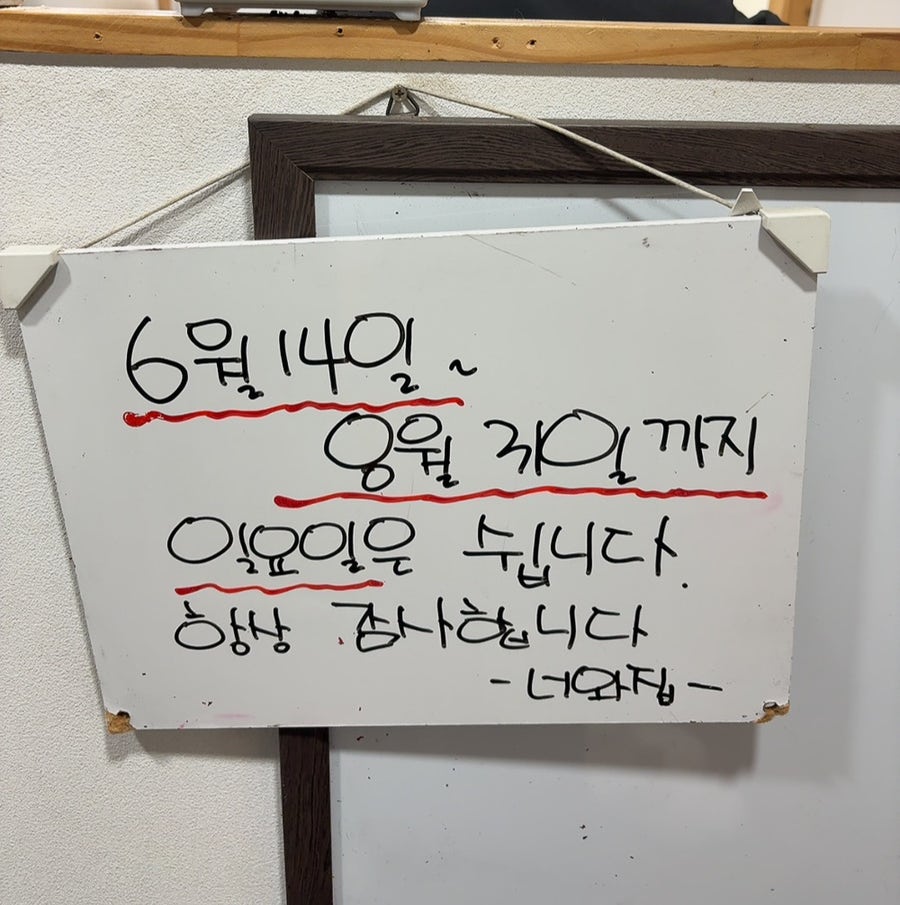 6월 14일 ~
8월 31일 까지
일요일은 쉽니다.
항상 감사합니다
- 너와집 -